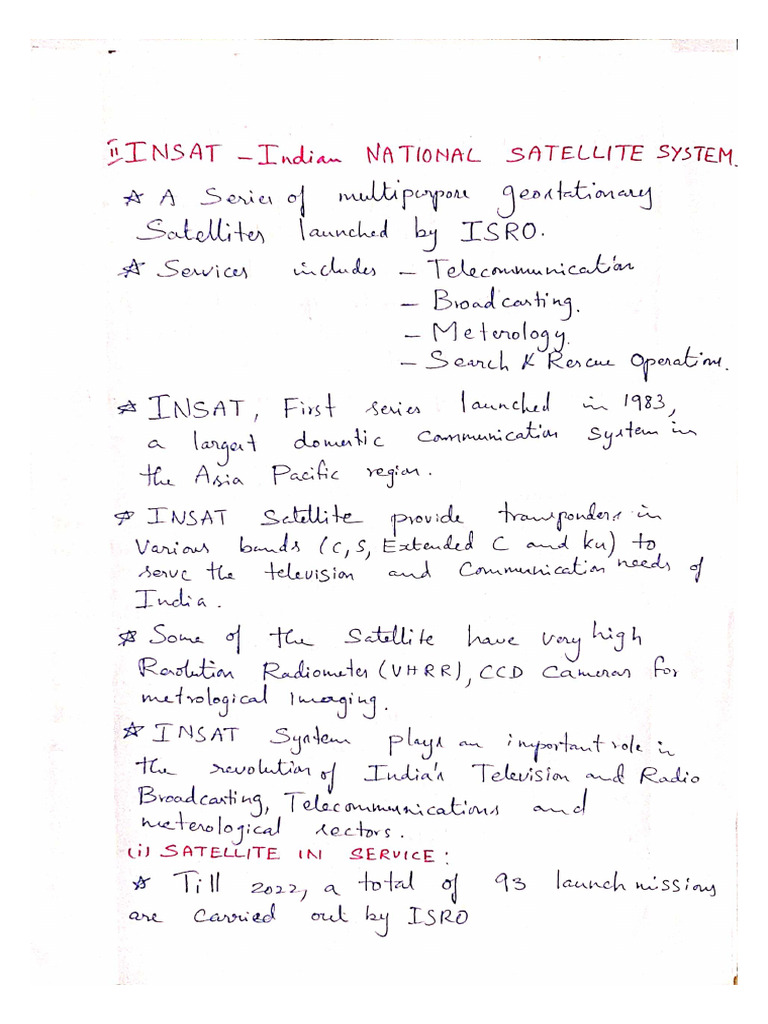 II INSAT - Indian NATIONAL SATELLITE SYSTEM.
☆ A Series of multipurpose geostationary
Satellites launched by ISRO.
☆ Services includes - Telecommunication
- Broadcasting.
- Meterology.
- Search & Rescue Operations.
☆ INSAT, First series launched in 1983,
a largest domestic communication system in
the Asia Pacific region.
☆ INSAT Satellite provide transponders in
Various bands (C, S, Extended C and Ku) to
serve the television and Communication needs of
India.
☆ Some of the Satellite have very high
Resolution Radiometer (VHRR), CCD Cameras for
metrological Imaging.
☆ INSAT System plays an important role in
the revolution of India's Television and Radio
Broadcasting, Telecommunications and
meterological sectors.
(i) SATELLITE IN SERVICE:
☆ Till 2022, a total of 93 launch missions
are carried out by ISRO